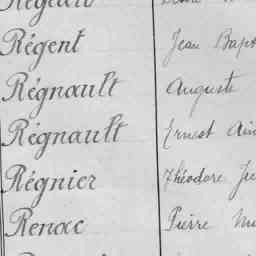 Régent Jean Bap
Régnault Auguste
Régnault Ernest
Régnier Théodore
Renac Pierre